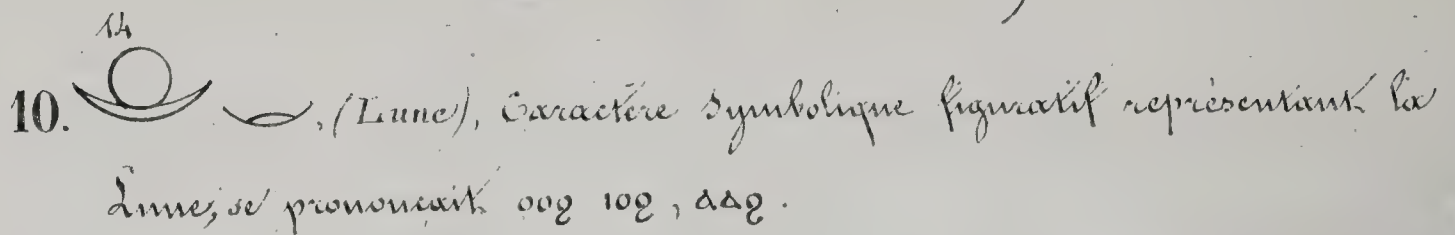 14
10. , (Lune), Caractère symbolique figuratif représentant la
Lune, se prononçait ⲟⲟϩ ⲓⲟϩ, ⲁⲁϩ.